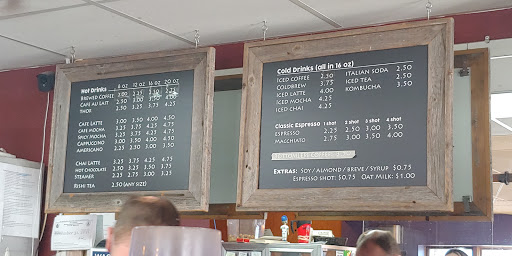 Hot Drinks 8 oz 12 oz 16 oz 20 oz
Brewed Coffee
Café au Lait 2.50 3.00 3.50 4.00
Thor 3.25 3.75 4.25
Cafe Latte 3.00 3.50 4.00 4.50
Cafe Mocha 3.25 3.75 4.25 4.75
Spicy Mocha 3.25 3.75 4.25 4.75
Cappuccino 3.00 3.50 4.00 4.50
Americano 2.50 3.00 3.50
Chai Latte 3.25 3.75 4.25 4.75
Hot Chocolate 2.75 3.25 3.75 4.25
Steamer 2.75 3.00 3.25
Rishi Tea 2.50 (any size)
Cold Drinks (all in 16 oz)
Iced Coffee 2.50
Coldbrew 3.00
Iced Latte 4.00
Iced Mocha 4.25
Iced Chai 4.25
Italian Soda 2.50
Iced Tea 2.50
Kombucha 3.50
Classic Espresso 1 shot 2 shot 3 shot 4 shot
Espresso 2.25 2.50 3.00 3.50
Macchiato 2.75 3.00 3.50 4.00
Extras: Soy / Almond / Breve / Syrup $0.75
Espresso Shot: $0.75 Oat Milk: $1.00